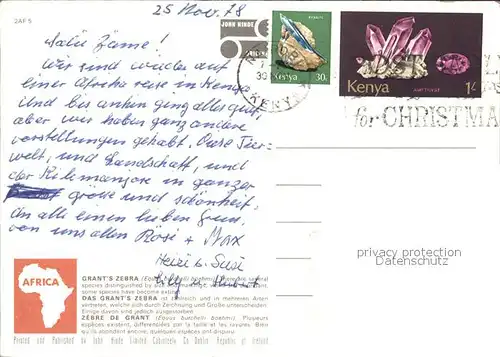 25 Nov. 78
2AF 5
JOHN HINDE
Kenya 30c
Kenya AMETHYST 1/-
for CHRISTMA
Salü Zäme!
Wir sind wieder auf
einer Afrika reise in Kenya
Und bis anhin ging alles gut,
aber wir haben ganz andere
vorstellungen gehabt. Diese Tier-
welt, und Landschaft, und
der Kilimanjaro in ganzer
grösse und schönheit.
An alle einen lieben Gruss
von uns allen Rösi + Max
Heizi u. Susi
privacy protection
Datenschutz
AFRICA
GRANT'S ZEBRA (Equus burchelli boehmi)
species distinguished by
some species have become extinct.
DAS GRANT'S ZEBRA ist zahlreich und in mehreren Arten
vertreten, welche sich durch Zeichnung und Größe unterscheiden.
Einige davon sind jedoch ausgestorben.
ZÈBRE DE GRANT (Equus burchelli boehmi). Plusieurs
espèces existent, différenciées par la taille et les rayures. Bien
qu'ils abondent encore; quelques espèces ont disparues.
Printed and Published by John Hinde Limited Cabinteely Co Dublin Republic of Ireland